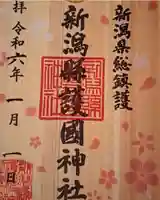 新潟県総鎮護
新潟縣護國神社
拝 令和六年 一月 一日